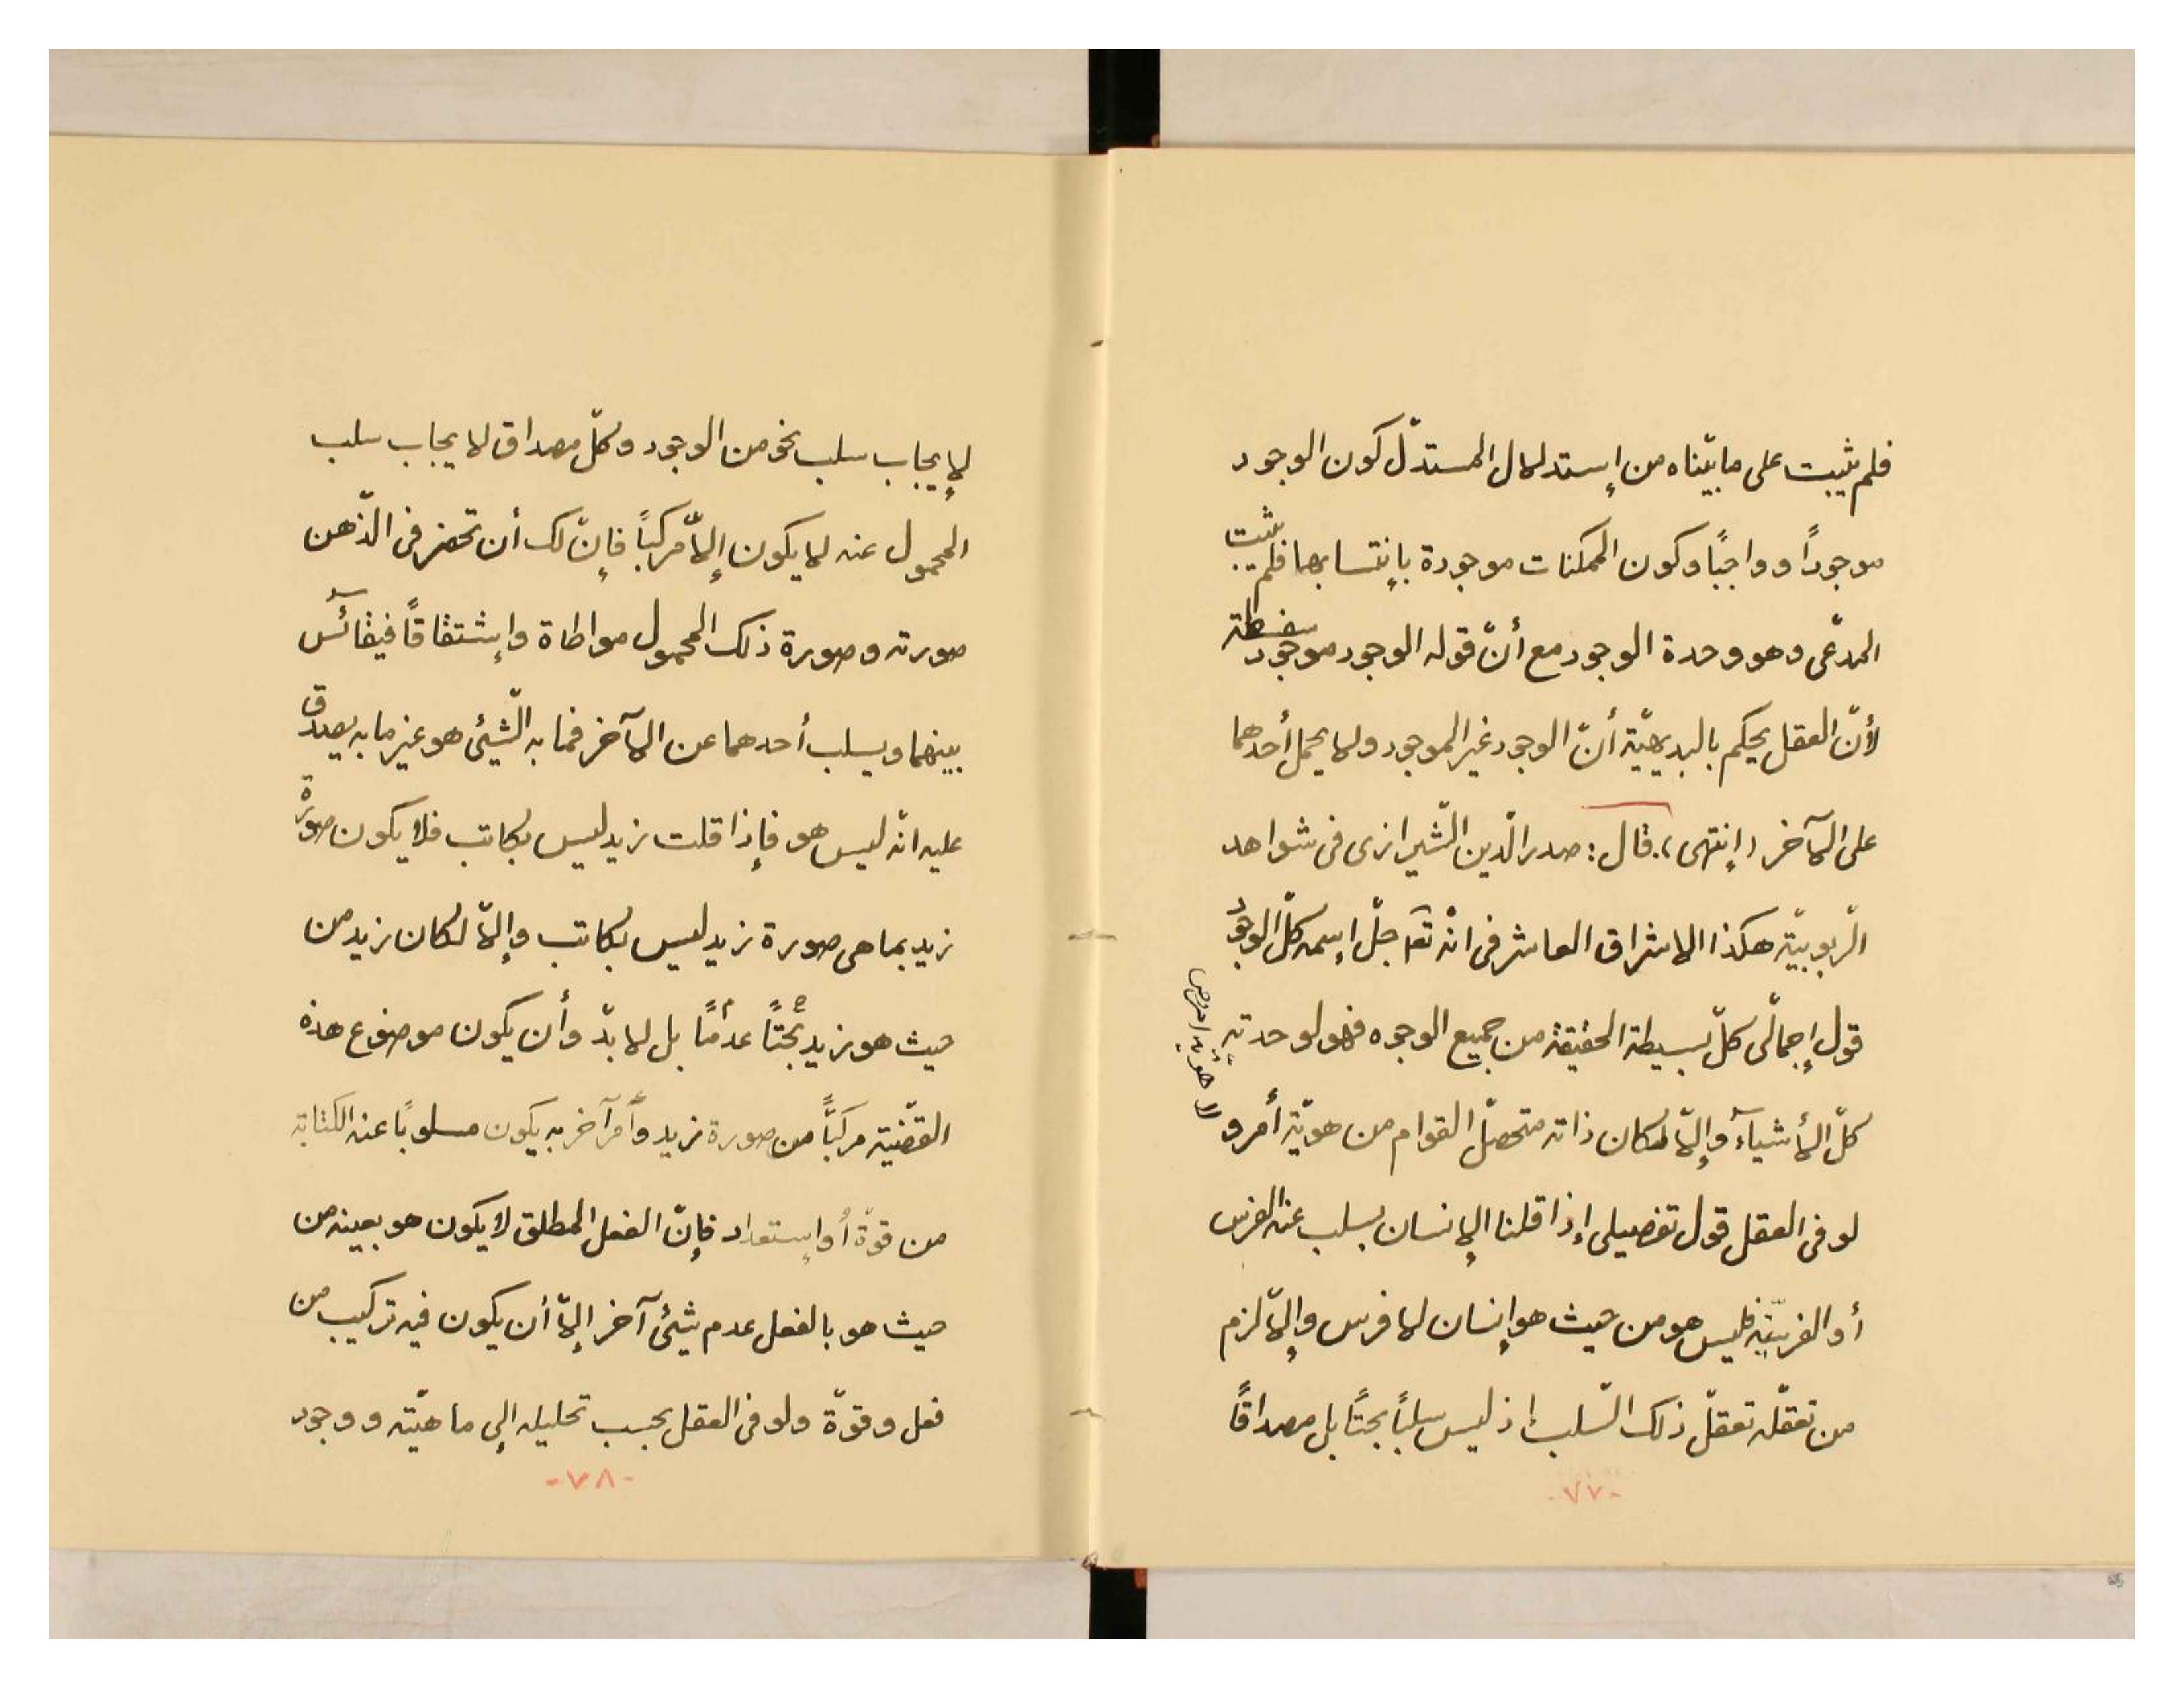 فلم يثبت على ما بيّناه من إستدلال المستدلّ كون الوجود
موجوداً وواجبًا وكون الممكنات موجودة بإنتسابها فلم يثبت
المدّعى وهو وحدة الوجود مع أنّ قوله الوجود موجود سفسطة
لأنّ العقل يحكم بالبديهيّة أنّ الوجود غير الموجود ولا يحمل أحدهما
على الآخر (إنتهى). قال: صدر الّدين الّشيرازى فى شواهد
الّربوبيّة هكذا الاشراق العاشر فى انّه تعا جلّ إسمه كلّ الوجود
قول إجمالّى كلّ بسيطة الحقيقة من جميع الوجوه فهو لوحدته
كلّ الأشيآء وإلاّ لكان ذاته متحصّل القوام من هويّة أمر و
لا هويّة امر
لو فى العقل قول تفصيلى إذا قلنا الإنسان يسلب عنه الفرس
أو الفرسيّة فليس هو من حيث هو إنسان لا فرس وإلاّ لزم
من تعقّله تعقّل ذلك الّسلب إذ ليس سلباً بحتاً بل مصداقاً
-٧٧-
لإيجاب سلب نحو من الوجود وكلّ مصداق لايجاب سلب
المحمول عنه لا يكون إلاّ مركباً فإنّ لك أن تحضر فى الّذهن
صورته وصورة ذلك المحمول مواطاة وإشتقاقاً فيقائس
بينهما ويسلب أحدهما عن الآخر فما به الّشيئ هو غير ما به يصدق
عليه انّه ليس هو فإذا قلت زيد ليس بكاتب فلا يكون صورة
زيد بما هى صورة زيد ليس بكاتب وإلاّ لكان زيد من
حيث هو زيد بحتاً عدماً بل لا بدّ وأن يكون موضوع هذه
القضّية مركبّاً من صورة زيد وأمر آخر به يكون مسلوبًا عنه الكتابة
من قوّة أو إستعداد فإنّ الفعل المطلق لا يكون هو بعينه من
حيث هو بالفعل عدم شيئ آخر إلاّ أن يكون فيه تركيب من
فعل وقوّة ولو فى العقل بحسب تحليله إلى ماهيّته ووجود
-٧٨-